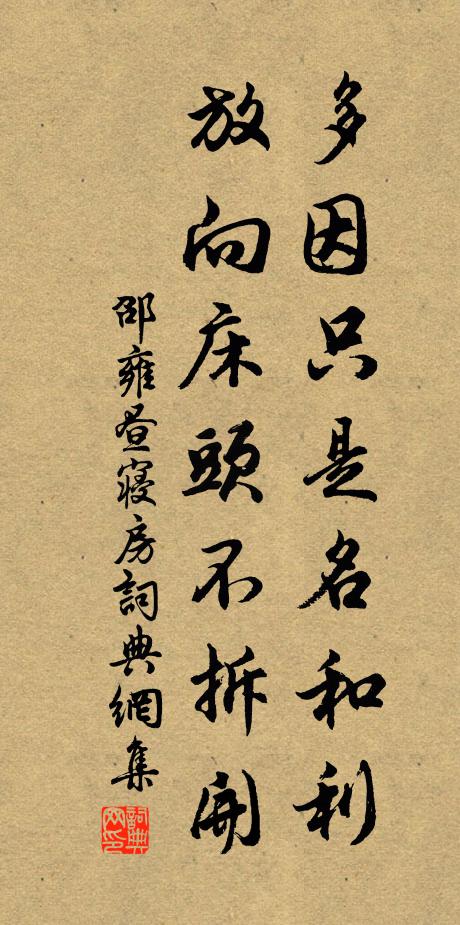 多因只是名和利
放向床頭不拆開
邵雍晝寢房詞典網集
詞典網印